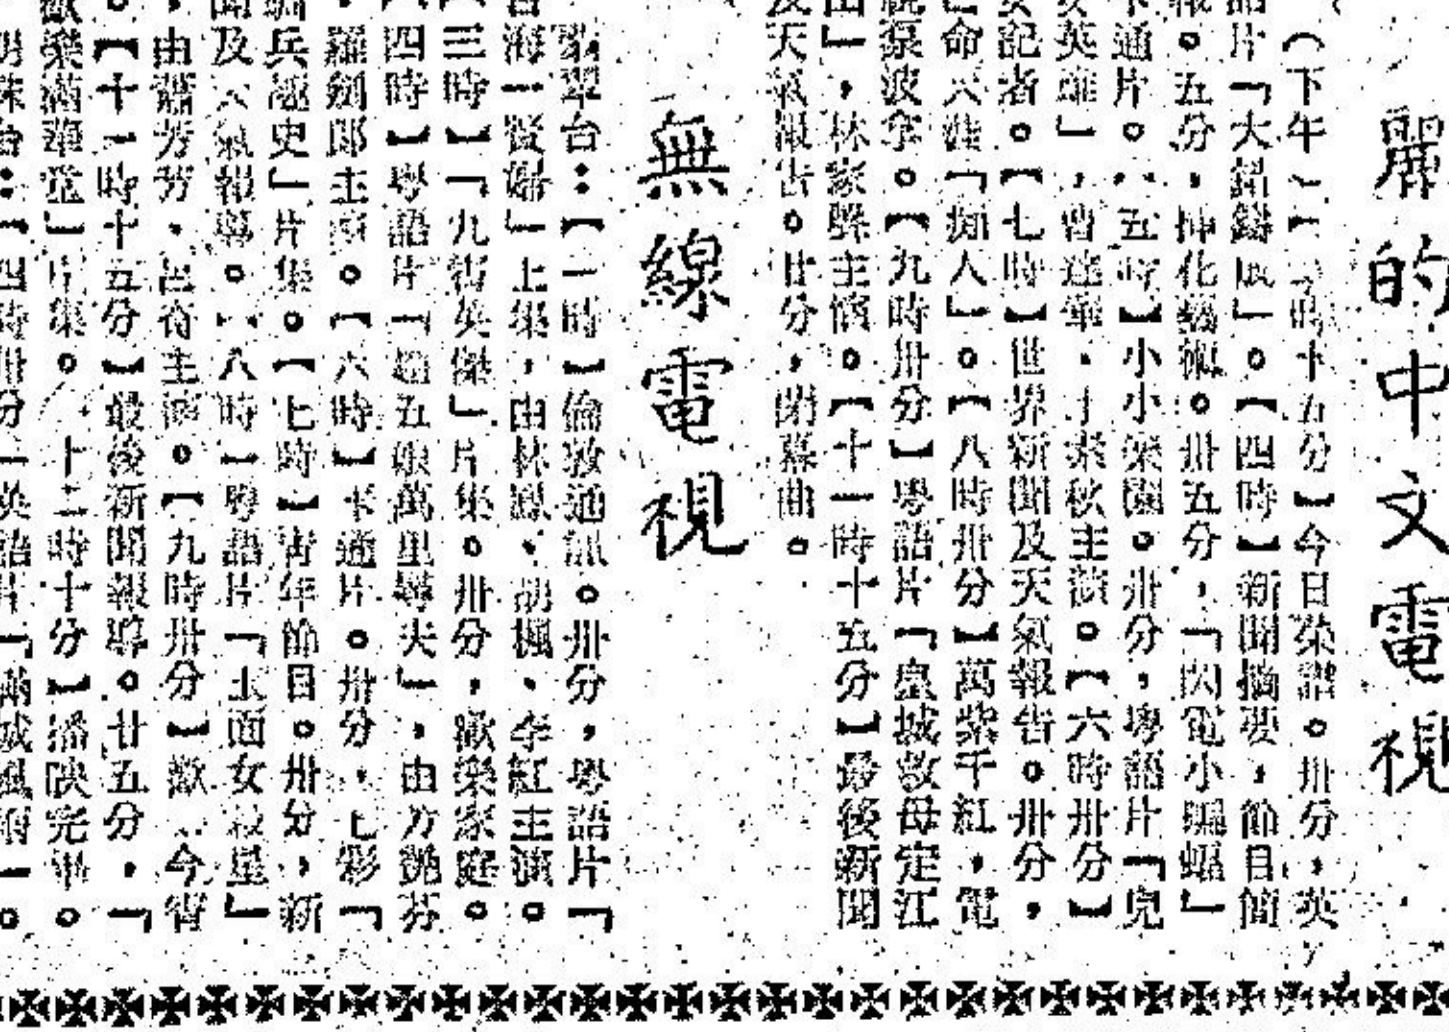 麗的中文電視
（下午）【三時十五分】今日菜譜。卅分，英
語片「大鑄錯」。【四時】新聞摘要，節目簡
報。五分，揷花藝術。卅五分，「閃電小騙蝠」
卡通片。【五時】小小樂園。卅分，粵語片「兒
女英雄」，曹達華、于素秋主演。【六時卅分】
女記者。【七時】世界新聞及天氣報告。卅分，
亡命天涯「痴人」。【八時卅分】萬紫千紅，電
視泵波拿。【九時卅分】粵語片「皇城救母定江
山」，林家聲主演。【十一時十五分】最後新聞
及天氣報告。廿分，閉幕曲。
無線電視
翡翠台：【一時】倫敦通訊。卅分，粵語片「
苦海一賢婦」上集，由林鳳、胡楓、李紅主演。
【三時】「九街英傑」片集。卅分，歡樂家庭。
【四時】粵語片「趙五娘萬里尋夫」，由方艷芬
、羅劍郎主演。【六時】卡通片。卅分，七彩「
騎兵趣史」片集。【七時】靑年節目。卅分，新
聞及天氣報導。【八時】粵語片「玉面女殺星」
，由蕭芳芳、呂奇主演。【九時卅分】歡樂今宵
。【十一時十五分】最後新聞報導。廿五分，「
歡樂滿華堂」片集。【十二時十分】播映完畢。
明珠台：【四時卅分】英語片「滿城風雨」。